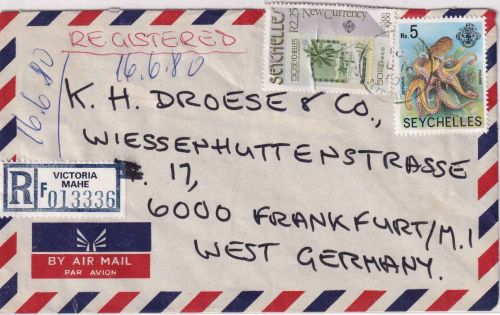 REGISTERED
16.6.80
16.6.80
SEYCHELLES
R2.25
New Currency
Rs.5
SEYCHELLES
K. H. DROESE & CO.,
WIESSENHUTTENSTRASSE
17,
6000 FRANKFURT/M.1
WEST GERMANY.
R
VICTORIA
MAHE
F 013336
BY AIR MAIL
PAR AVION